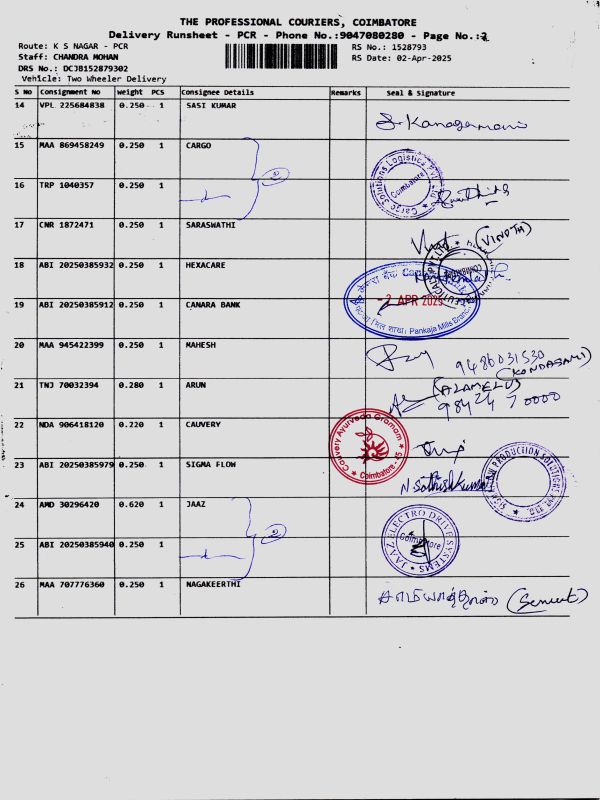 THE PROFESSIONAL COURIERS, COIMBATORE
Delivery Runsheet - PCR - Phone No.:9047080280 - Page No.:2
Route: K S NAGAR - PCR
RS No.: 1528793
Staff: CHANDRA MOHAN
RS Date: 02-Apr-2025
DRS No.: DCJB152879302
Vehicle: Two Wheeler Delivery
S No Consignment No Weight PCS Consignee Details Remarks Seal & Signature
14 VPL 225684838 0.250 1 SASI KUMAR
S. Kanagamani
15 MAA 869458249 0.250 1 CARGO
2
Cargo Solutions Logistics Pvt. Ltd
Coimbatore
16 TRP 1040357 0.250 1
17 CNR 1872471 0.250 1 SARASWATHI
(VINOTH)
18 ABI 20250385932 0.250 1 HEXACARE
19 ABI 20250385912 0.250 1 CANARA BANK
- 2 APR 2025
Pankaja Mills Branch
20 MAA 945422399 0.250 1 MAHESH
9486031530
(KONDASAMI)
21 TNJ 70032394 0.280 1 ARUN
(ALAMELU)
98424 70000
22 NDA 906418120 0.220 1 CAUVERY
Cauvery Ayurveda Gramam
Coimbatore - 45
23 ABI 20250385979 0.250 1 SIGMA FLOW
N Sathishkumar
PRODUCTION SOLUTIONS
24 AMD 30296420 0.620 1 JAAZ
2
JAAZ ELECTRO DRIVE SYSTEMS
Coimbatore
25 ABI 20250385940 0.250 1
26 MAA 707776360 0.250 1 NAGAKEERTHI